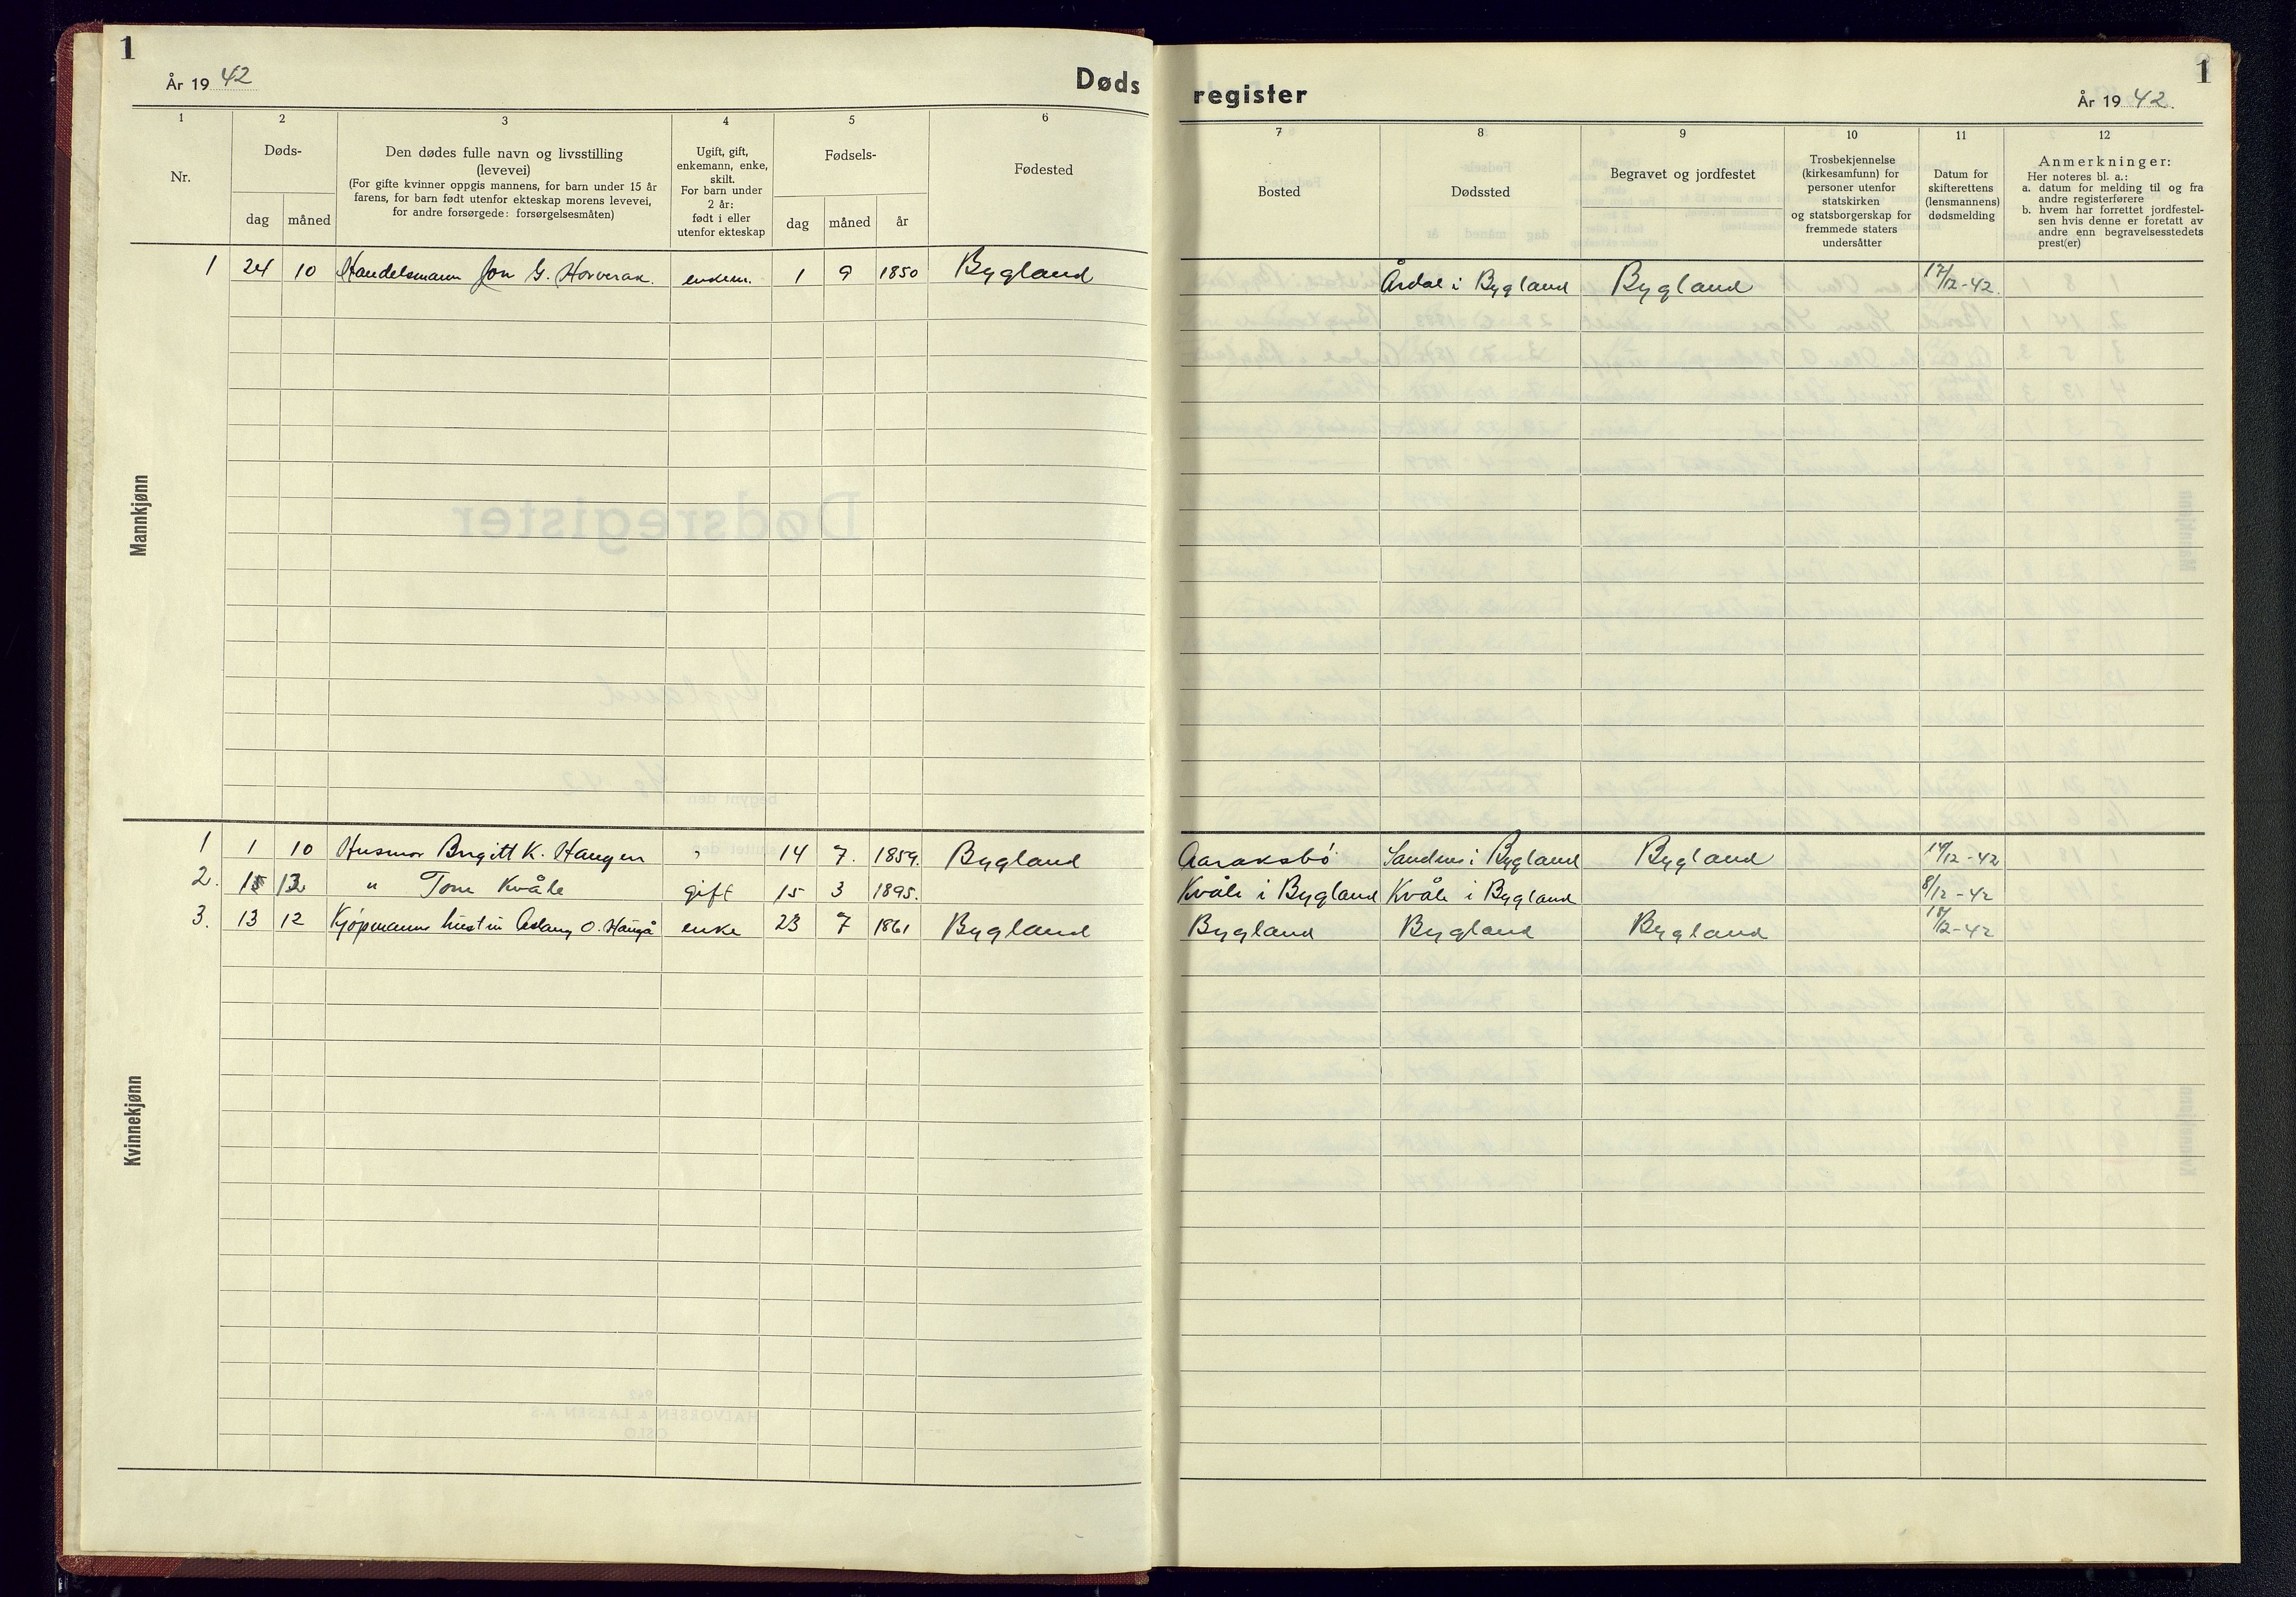 1
År 19 42
Døds
register
År 19 42.
1
1
2
3
4
5
6
7
8
9
10
11
12
Nr.
Døds-
dag
måned
Den dødes fulle navn og livsstilling
(levevei)
(For gifte kvinner oppgis mannens, for barn under 15 år
farens, for barn født utenfor ekteskap morens levevei,
for andre forsørgede: forsørgelsesmåten)
Ugift, gift,
enkemann, enke,
skilt.
For barn under
2 år:
født i eller
utenfor ekteskap
Fødsels-
dag
måned
år
Fødested
Bosted
Dødssted
Begravet og jordfestet
Trosbekjennelse
(kirkesamfunn) for
personer utenfor
statskirken
og statsborgerskap for
fremmede staters
undersåtter
Datum for
skifterettens
(lensmannens)
dødsmelding
Anmerkninger:
Her noteres bl. a.:
a. datum for melding til og fra
andre registerførere
b. hvem har forrettet jordfestel-
sen hvis denne er foretatt av
andre enn begravelsesstedets
prest(er)
Mannkjønn
1 24 10 Handelsmann Jon G. Horverak. enkem. 1 9 1850 Bygland Årdal i Bygland Bygland 17/12-42.
Kvinnekjønn
1 1 10 Husmor Birgitt K. Haugen 14 7. 1859. Bygland Aaraksbø Sandnes i Bygland Bygland 14/12-42
2. 15 12 " Tone Kvåle gift 15 3 1895. Kvåle i Bygland Kvåle i Bygland 8/12-42
3. 13 12 Kjøpmanns hustru Aslaug O. Haugå enke 23 7 1861 Bygland Bygland Bygland Bygland 18/12-42